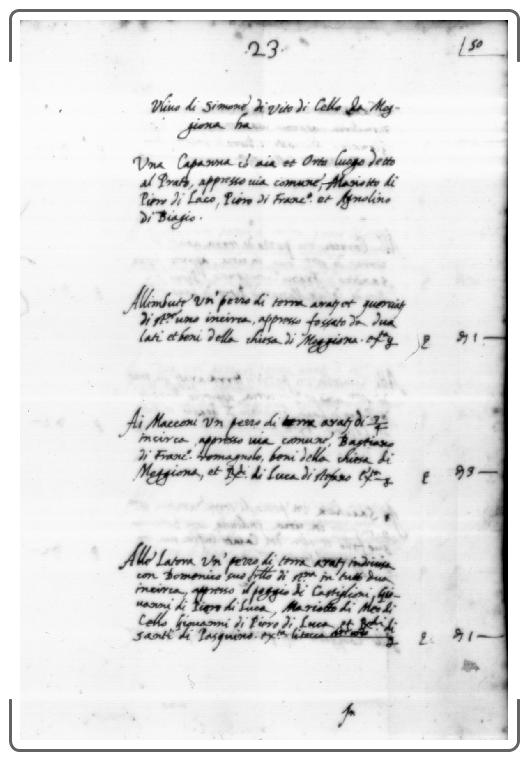 .23.
50
Ulivo di Simone di Vito di Cello da Meg-
giona ha
Una Capanna cō aia et Orto luogo detto
al Prato, appresso via comune, Mariotto di
Piero di Laco, Piero di Franc.º et Agnolino
di Biagio.
Allimbuto Un' pezzo di terra arat et querciat
di uno incirca, appresso fossato da dua
lati et beni della chiesa di Meggiona.
1
Ai Macconi Un pezzo di terra arat di
incirca, appresso via comune, Bastiano
di Franc.º Romagnolo, beni della chiesa di
Meggiona, et di Luca di stefano
Un' pezzo di terra arat indivisa
con Domenico suo di in tutto dua
incirca, appresso il poggio di Castiglioni, Gio-
vanni di Piero di Luca, Mariotto di Meo di
Cello Giovanni di Piero di Luca et di
Santi di Pasquino.
1